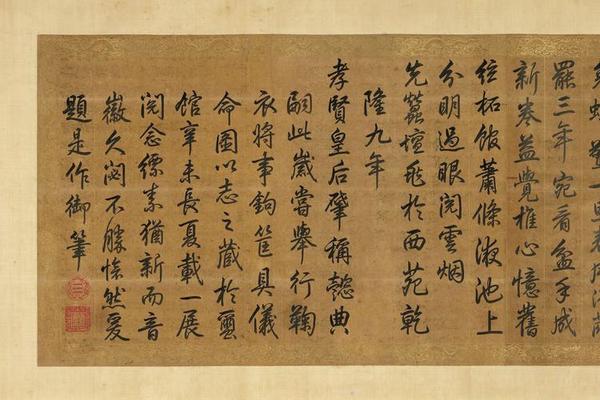 罷三年宛看盆手成
新卷益覺椎心憶舊
絃柘館蕭條液池上
分明過眼閱雲烟
先蠶壇於西苑乾
隆九年
孝賢皇后肇稱懿典
嗣此歲嘗舉行鞠
衣將事鉤筐具儀
命圖以志之藏於蠶
館辛未長夏載一展
閱念縹素猶新而音
徽久閟不勝愴然爰
題是作御筆